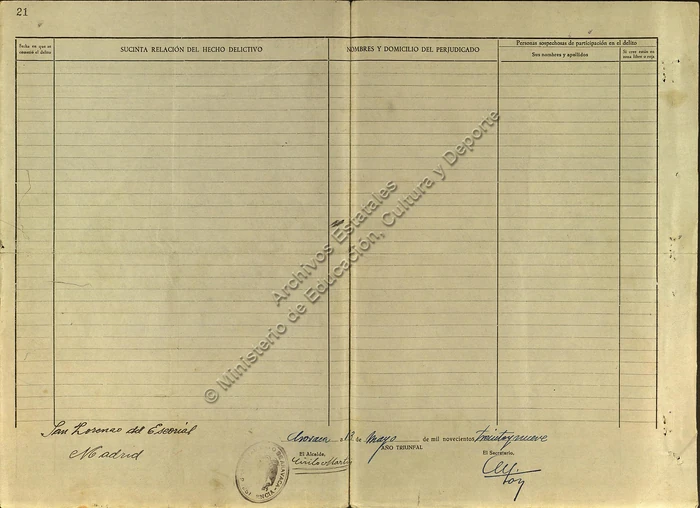 21
Fecha en que se cometió el delito
SUCINTA RELACIÓN DEL HECHO DELICTIVO
NOMBRES Y DOMICILIO DEL PERJUDICADO
Personas sospechosas de participación en el delito
Sus nombres y apellidos
Si cree están en zona libre o roja
© Ministerio de Educación, Cultura y Deporte
Archivos Estatales
San Lorenzo del Escorial
Madrid
a 13 de Mayo de mil novecientos treinta y nueve
AÑO TRIUNFAL
El Alcalde,
El Secretario,